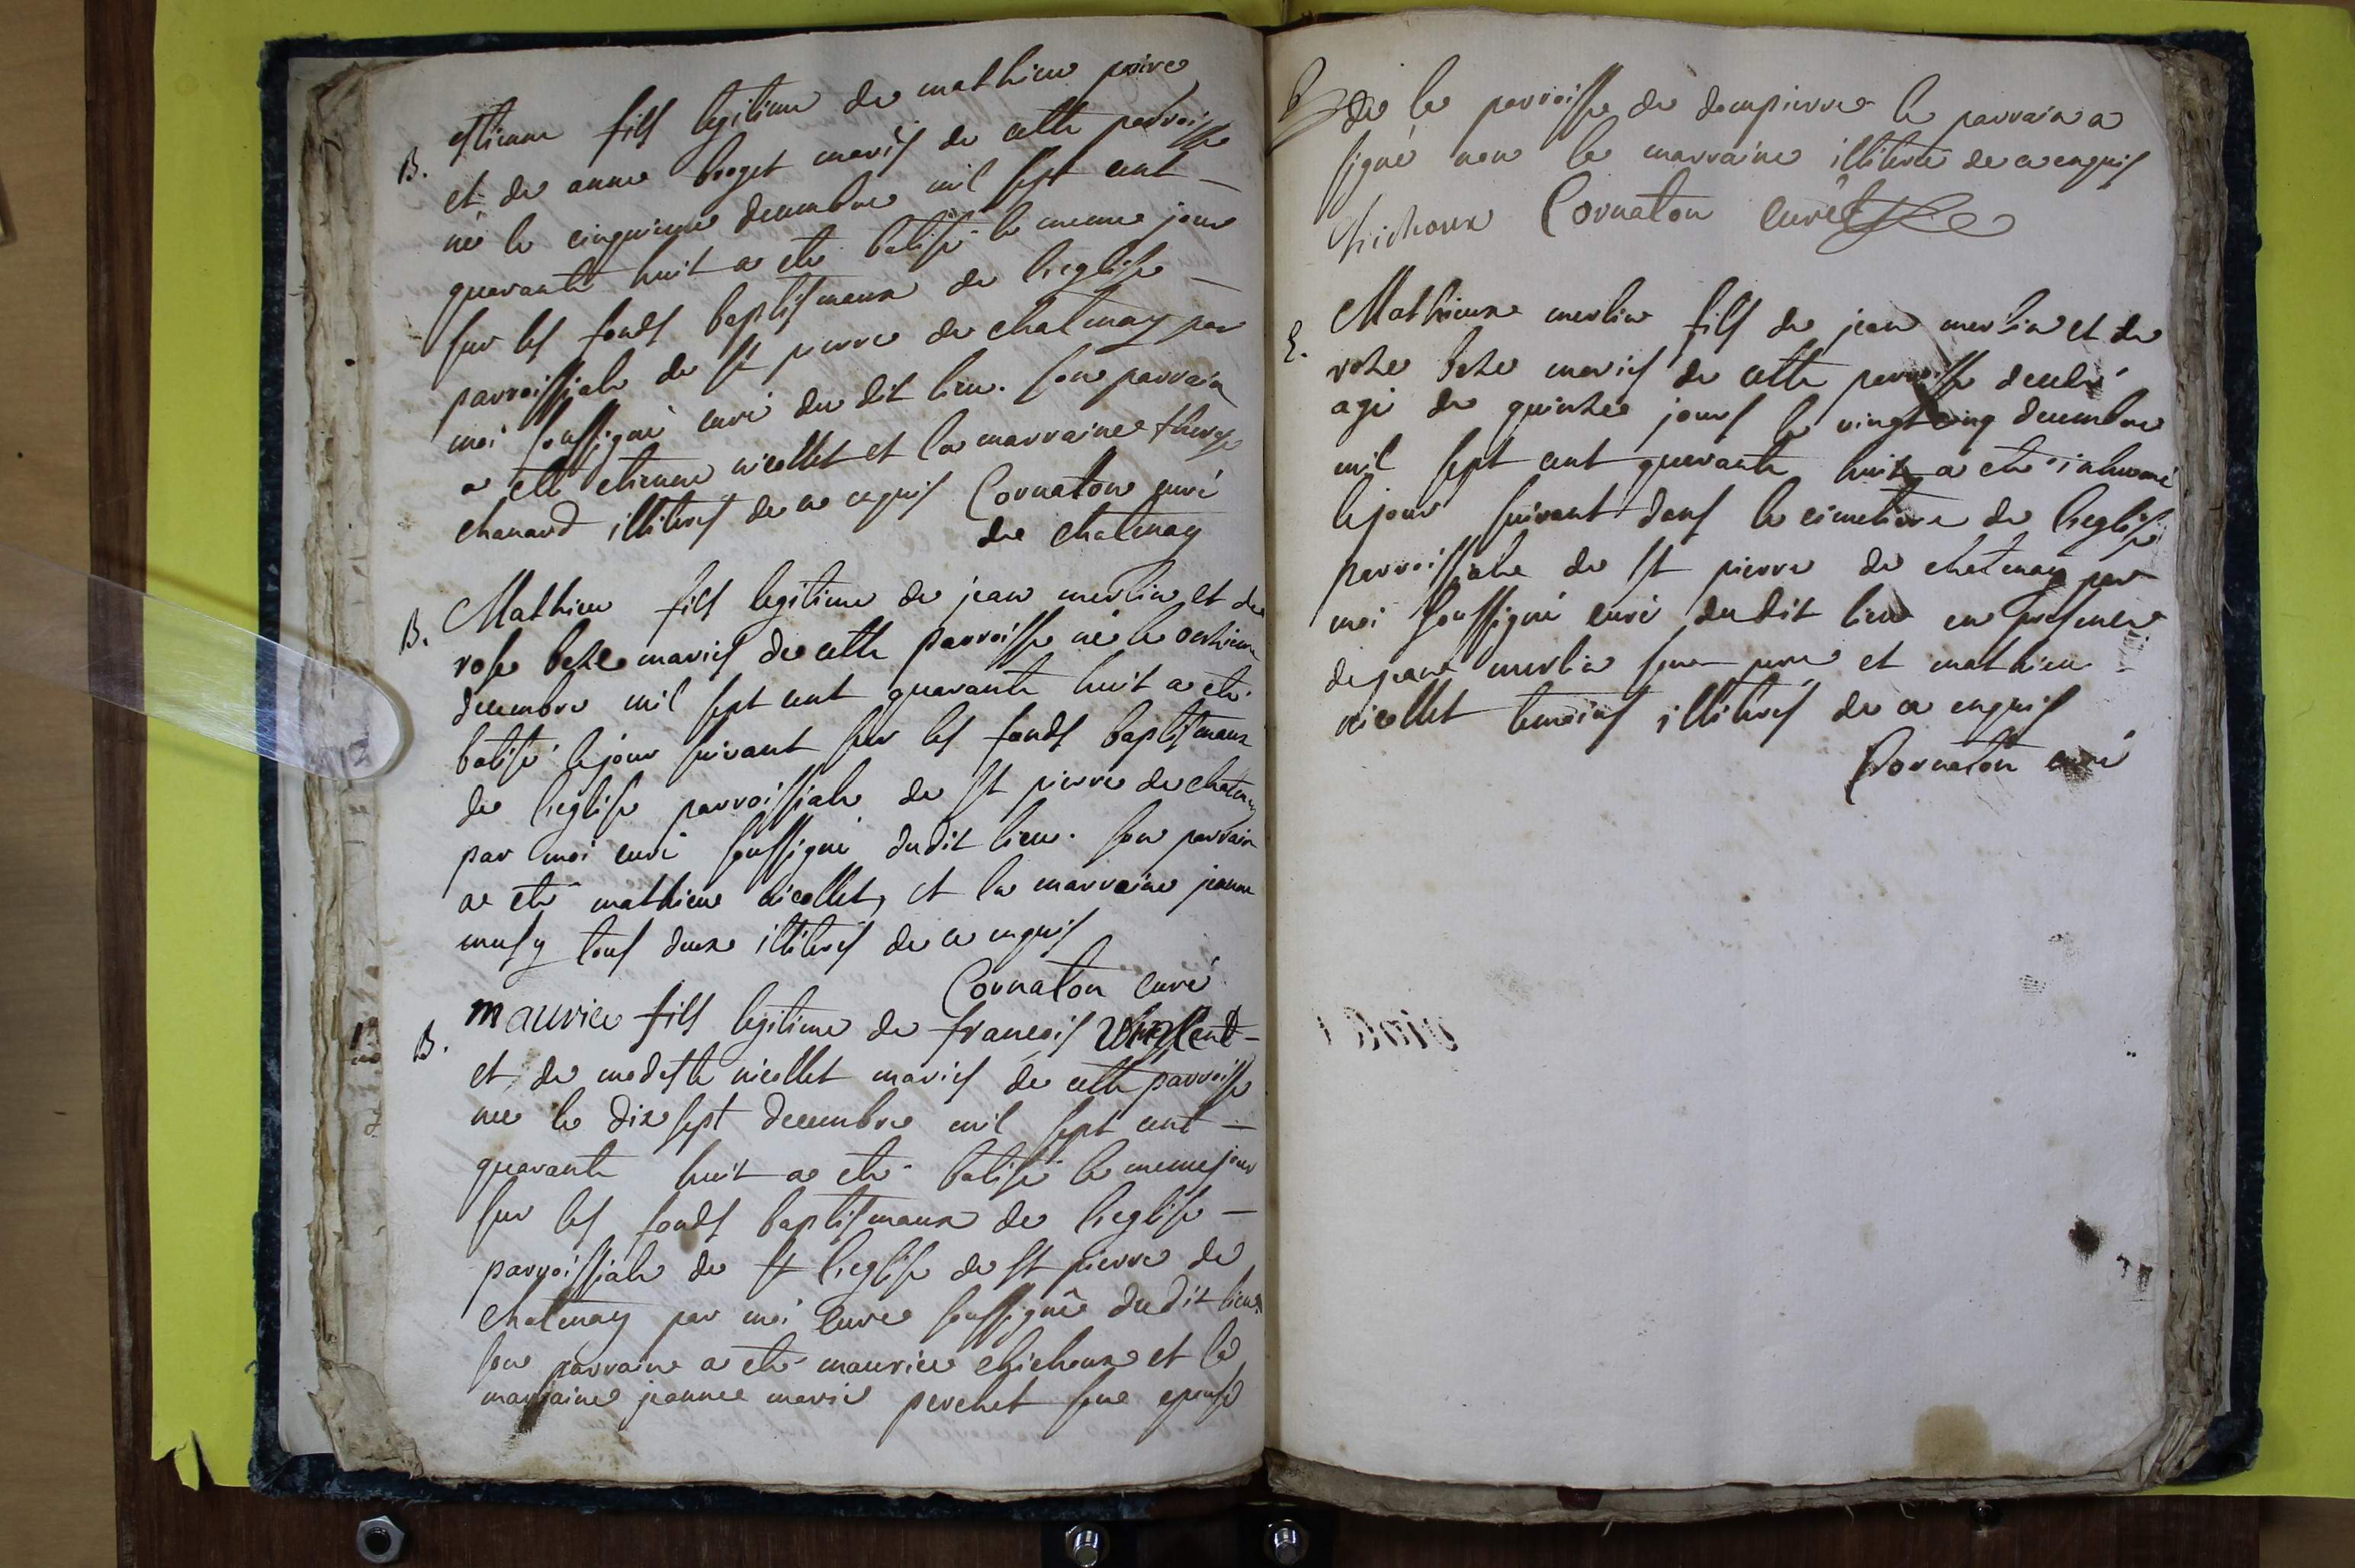 B. estienne fils legitime de mathieu poire
et de anne broget mariés de cette parroisse
né le cinquieme decembre mil sept cent
quarante huit a eté batisé le meme jour
sur les fonds baptismaux de l'eglise
parroissiale de st pierre de chatenay par
moi soussigné curé du dit lieu. son parrain
a eté etienne nicollet et la marraine therese
chanard illiterés de ce enquis Cornaton curé
de chatenay
B. Mathieu fils legitime de jean merlin et de
rose beze mariés de cette parroisse né le onzieme
decembre mil sept cent quarante huit a eté
batisé le jour suivant sur les fonds baptismaux
de l'eglise parroissiale de st pierre de chatenay
par moi curé soussigné dudit lieu. son parrain
a eté mathieu nicollet, et la marraine jeanne
musy tous deux illiterés de ce enquis
Cornaton curé
B. maurice fils legitime de francois vincent
et de modeste nicollet mariés de cette parroisse
né le dix sept decembre mil sept cent
quarante huit a eté batisé le meme jour
sur les fonds baptismaux de l'eglise
parroissiale de st l'eglise de st pierre de
chatenay par moi curé soussigné dudit lieu
son parrain a eté maurice chichoux et la
marraine jeanne marie perchet son epouse
de la parroisse de dompierre le parrain a
signé non la marraine illiterée de ce enquis
chichoux Cornaton curé
E. Mathieu merlin fils de jean merlin et de
roze beze mariés de cette parroisse decedé
agé de quinze jours le vingt cinq decembre
mil sept cent quarante huit a eté inhumé
le jour suivant dans le cimetiere de l'eglise
parroissiale de st pierre de chatenay par
moi soussigné curé dudit lieu en presence
de jean merlin son pere et mathieu
nicollet temoins illiterés de ce enquis
Cornaton curé